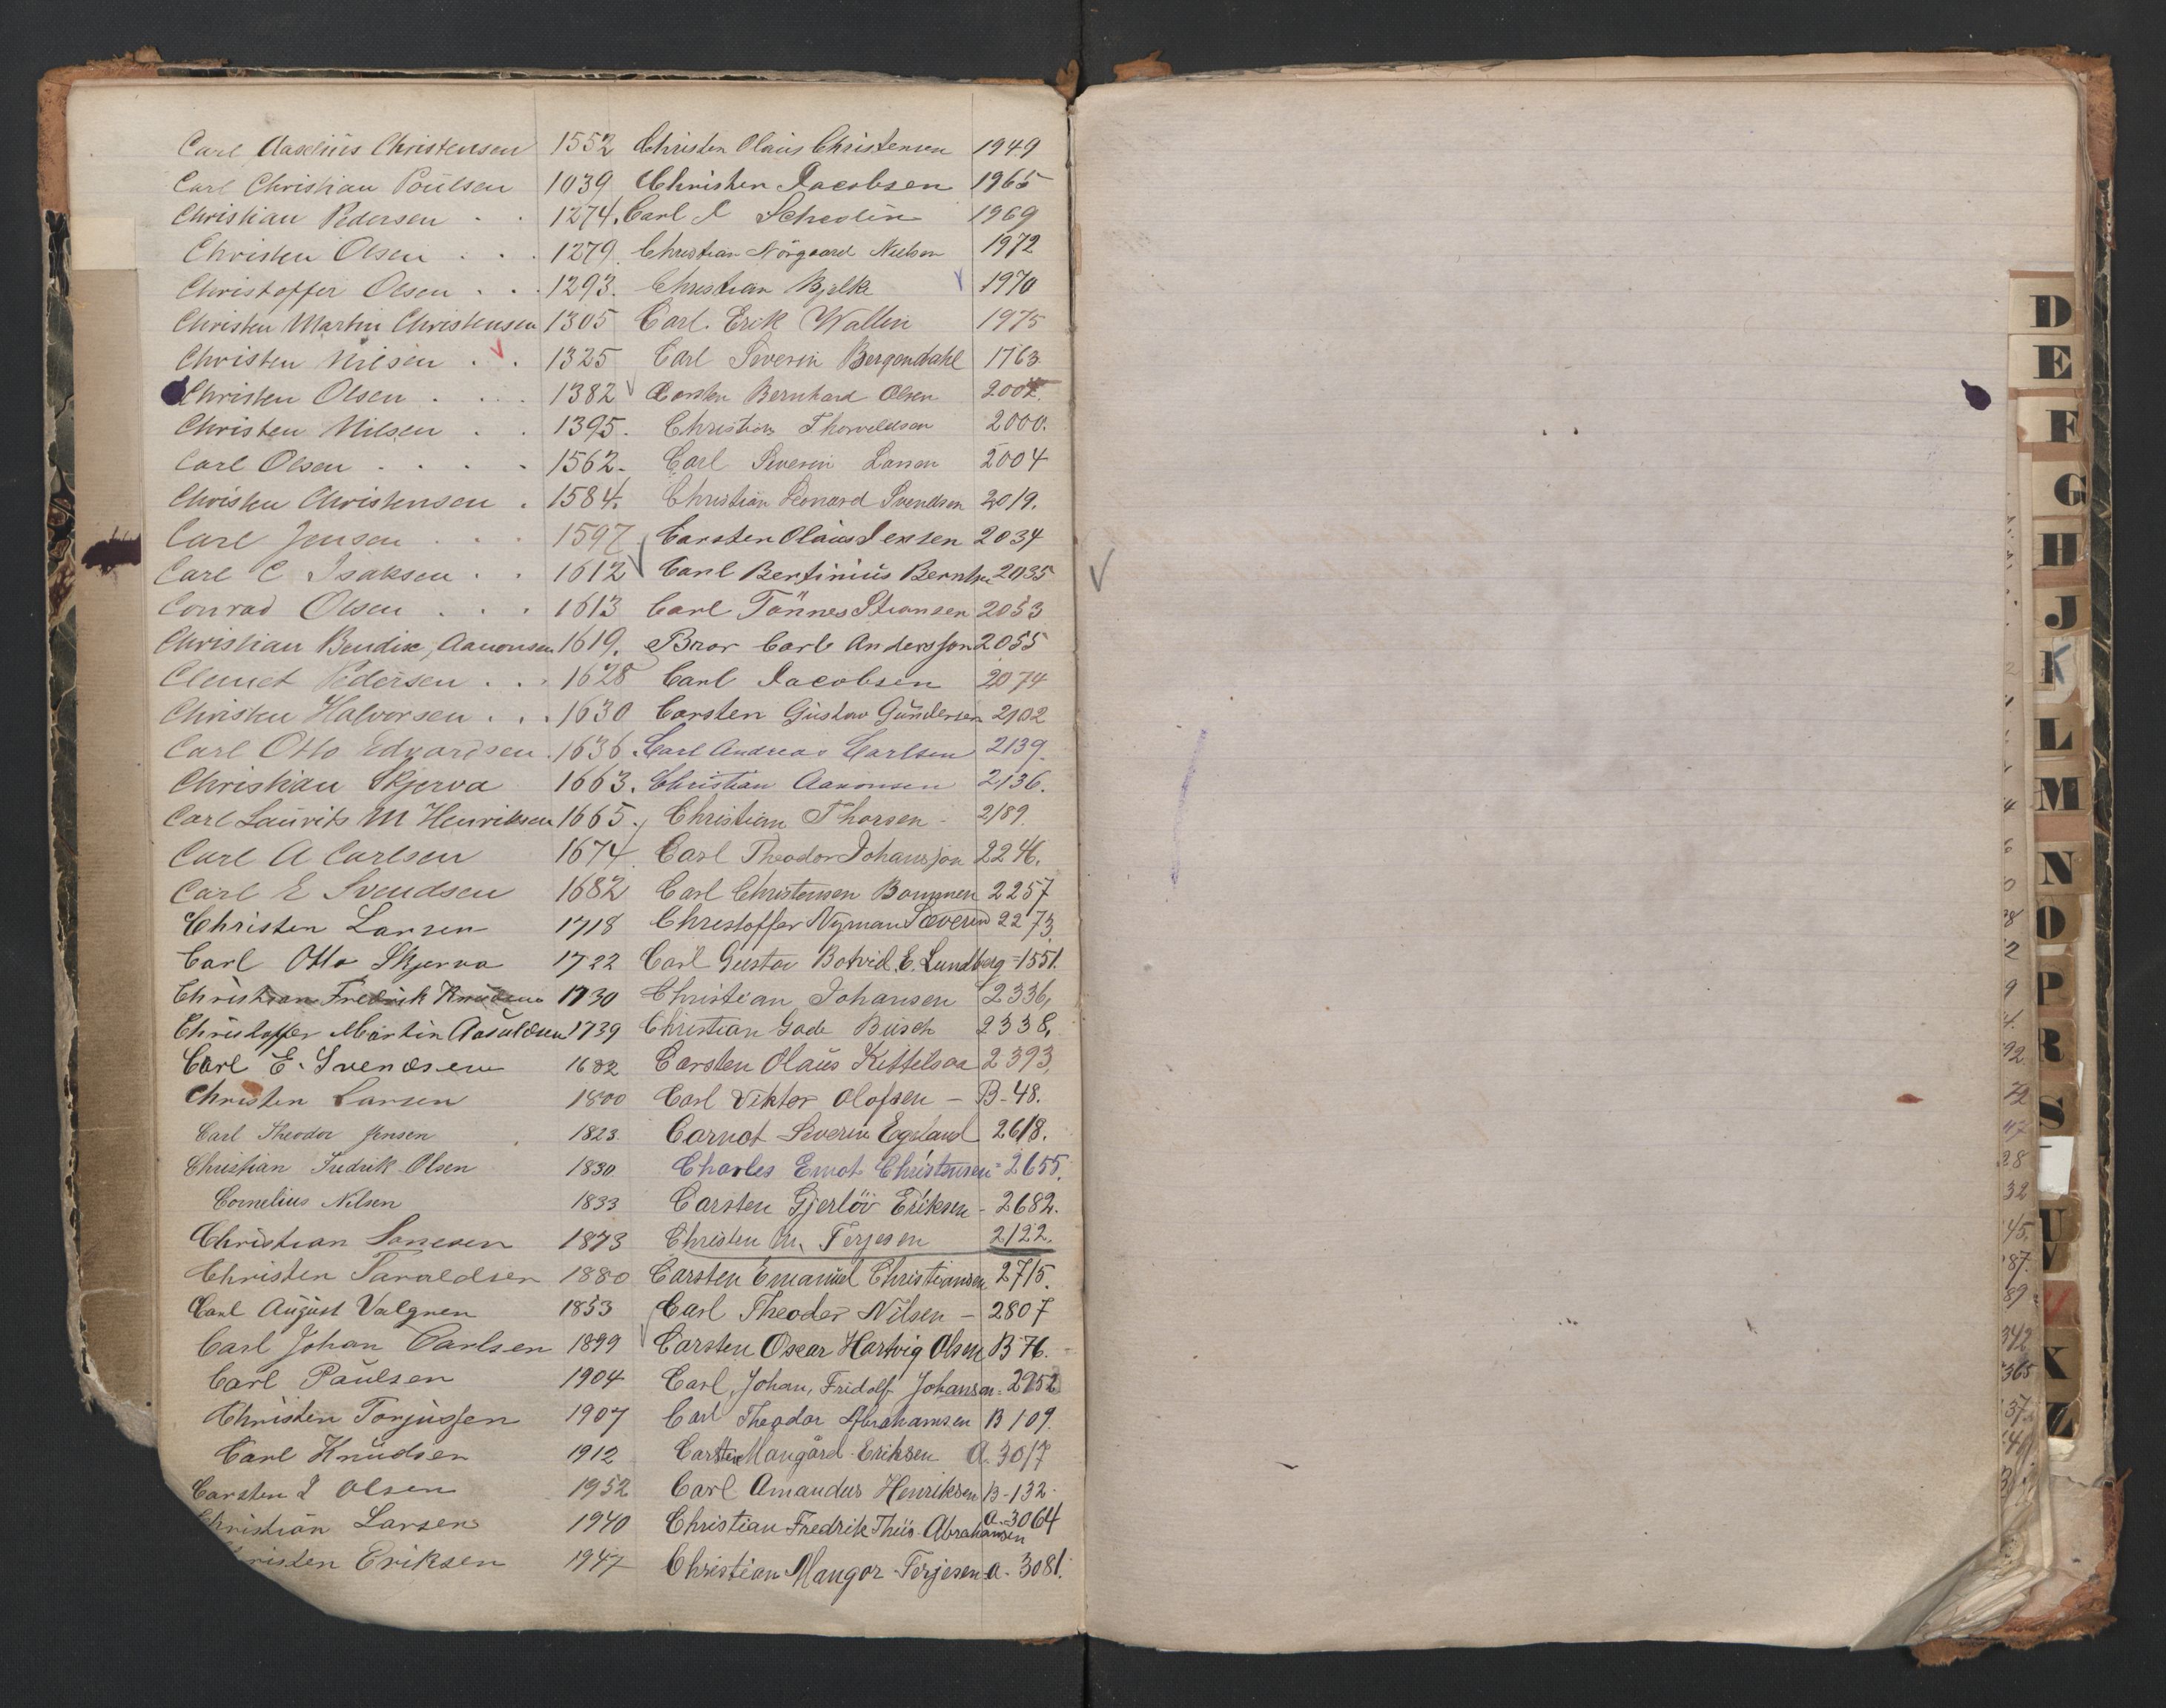 Carl Aaselius Christensen 1552
Carl Christian Poulsen 1039
Christian Pedersen . . 1274.
Christen Olsen . . . 1279.
Christoffer Olsen . . . 1293.
Christen Martin Christensen 1305
Christen Nilsen . . 1325
Christen Olsen . . . . 1382
Christen Nilsen . . 1395.
Carl Olsen . . . . 1562.
Christen Christensen . 1584.
Carl Jensen . . . 1597
Carl C Isaksen . . 1612
Conrad Olsen . . . 1613
Christian Bendix, Aanonsen 1619.
Clemet Pedersen . . . 1628
Christen Halvorsen . . . 1630
Carl Otto Edvardsen . 1636.
Christian Skjerva 1663.
Carl Laurits M Henriksen 1665.
Carl A Carlsen 1674
Carl E Svendsen 1682
Christen Larsen 1718
Carl Otto Skjerva 1722
Christian Fredrik Knudsen 1730
Christoffer Martin Aasuldsen 1739
Carl E. Svendsen 1682
Christen Larsen 1800
Carl Theodor Jensen 1823.
Christian Fredrik Olsen 1830
Cornelius Nilsen 1833
Christian 1873
Christen Taraldsen 1880
Carl August Valgren 1853
Carl Johan Carlsen 1899
Carl Paulsen 1904
Christen Torjussen 1907
Carl Knudsen 1912
Carsten I Olsen 1952
Christian Larsen 1940
risten Eriksen 1947
Christen Olaus Christensen 1949
Christen Jacobsen 1965
Carl J Schedin 1969
Christian Nörgaard Nielsen 1972
Christian Bjelke 1970
Carl. Erik Wallin 1975
Carl Severin Bergendahl 1763
Carsten Bernhard Olsen
Christian Thorvaldsen 2000.
Carl Severin Larsen 2004
Christian Leonard Svendsen 2019.
Carsten Olaus Jensen 2034
Carl Bertinius Berntsen 2035
Carl Tönnes Stiansen 2053
Bror Carl Andersson 2055
Carl Jacobsen 2074
Carsten Gustav Gundersen 2102
Carl Andreas Carlsen 2139.
Christian Aanonsen 2136.
Christian Thorsen - 2189.
Carl Theodor Johansson 2246.
Carl Christensen Bommen 2257
Christoffer Nyman Sæverud 2273
Carl Gustav Botvid. E. Lundberg = 1551.
Christian Johansen 2336,
Christian Gade Busch 2338,
Carsten Olaus Kittelsaa 2393,
Carl Viktor Olofsen - B-48.
Carnot Severin Egeland 2618.
Charles Ernst Christensen = 2655.
Carsten Gjerlöv Eriksen - 2682.
Christen M. Terjesen 2122.
Carsten Emanuel Christiansen 2715.
Carl Theodor Nilsen - 2807
Carsten Oscar Hartvig Olsen B 76.
Carl, Johan, Fridolf Johansen = 2952
Carl Theodor Abrahamsen B 109.
Carsten Mangård Eriksen A. 3017
Carl Amandus Henriksen B-132.
Christian Fredrik Thiis-Abrahamsen A.-3064
Christian Mangor Terjesen A. 3081.
D
E
F
G
H
J
K
L
M
N
O
P
R
S
U
V
X
Z